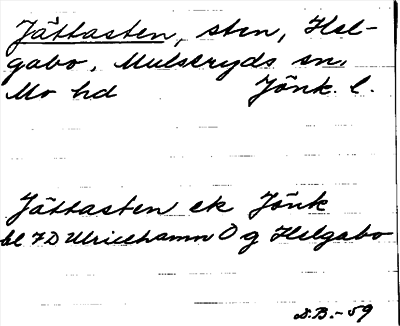 Jättasten, sten, Hel-
gabo, Mulseryds sn,
Mo hd Jönk. l.
Jättasten ek Jönk
bl 7D Ulricehamn O g Helgabo
S.B.-59